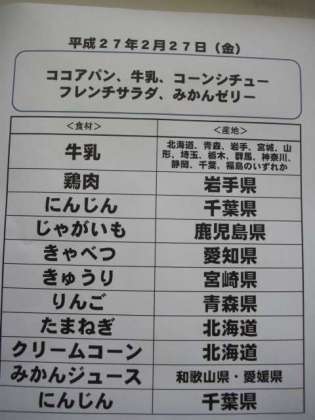 平成27年2月27日（金）
ココアパン、牛乳、コーンシチュー
フレンチサラダ、みかんゼリー
＜食材＞ ＜産地＞
牛乳 北海道、青森、岩手、宮城、山
形、埼玉、栃木、群馬、神奈川、
静岡、千葉、福島のいずれか
鶏肉 岩手県
にんじん 千葉県
じゃがいも 鹿児島県
きゃべつ 愛知県
きゅうり 宮崎県
りんご 青森県
たまねぎ 北海道
クリームコーン 北海道
みかんジュース 和歌山県・愛媛県
にんじん 千葉県